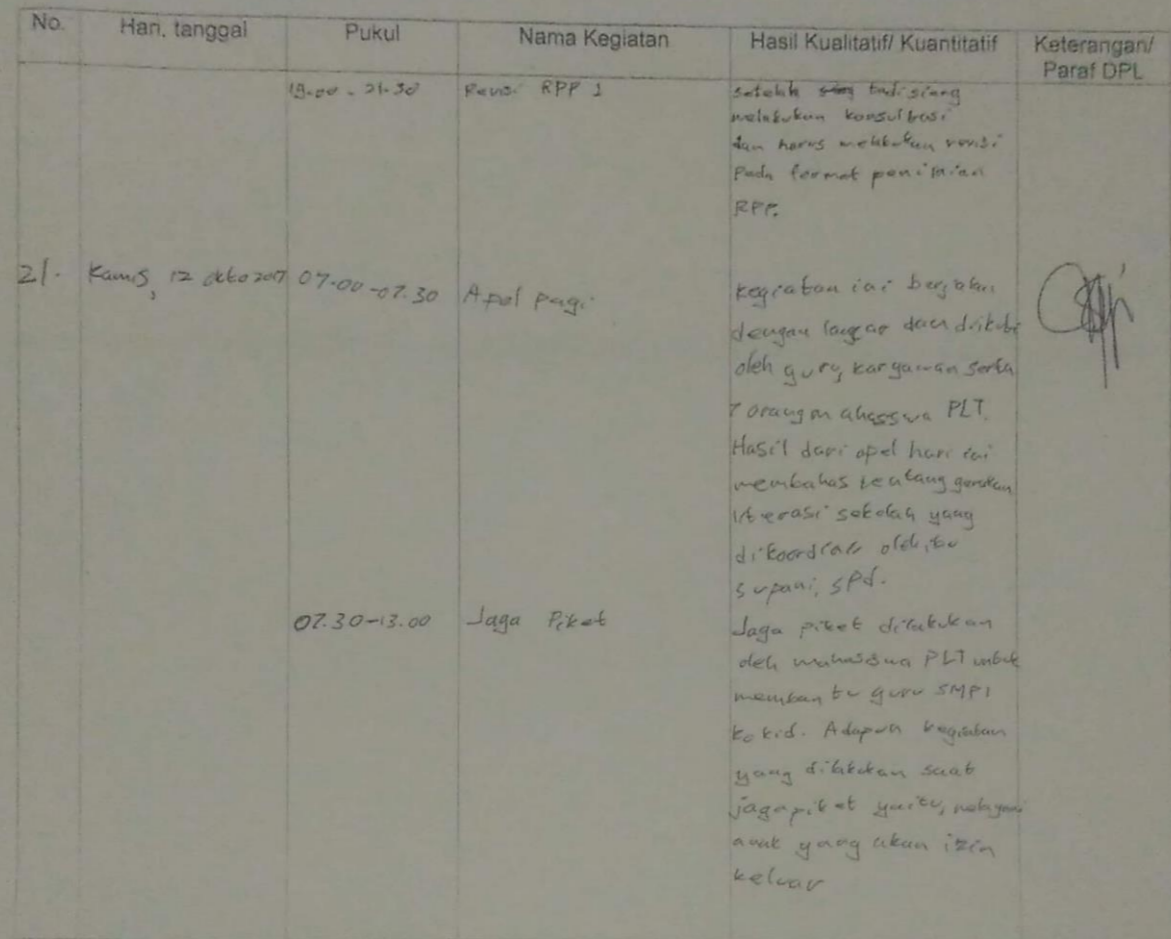 No. Hari, tanggal Pukul Nama Kegiatan Hasil Kualitatif/ Kuantitatif Keterangan/
Paraf DPL
19.00 - 21.30 Revisi RPP 1 setelah tadi siang
melakukan konsultasi
dan harus melakukan revisi
Pada format penilaian
RPP.
21. Kamis, 12 okto 2017 07.00 - 07.30 Apel pagi kegiatan ini berjalan
dengan lancar dan diikuti
oleh guru, karyawan serta
7 orang mahasiswa PLT.
Hasil dari apel hari ini
membahas tentang gerakan
literasi sekolah yang
dikoordinir oleh ibu
supani, SPd.
07.30-13.00 Jaga Piket Jaga piket dilakukan
oleh mahasiswa PLT untuk
membantu guru SMP 1
Adapun kegiatan
yang dilakukan saat
jaga piket yaitu, melayani
anak yang akan izin
keluar